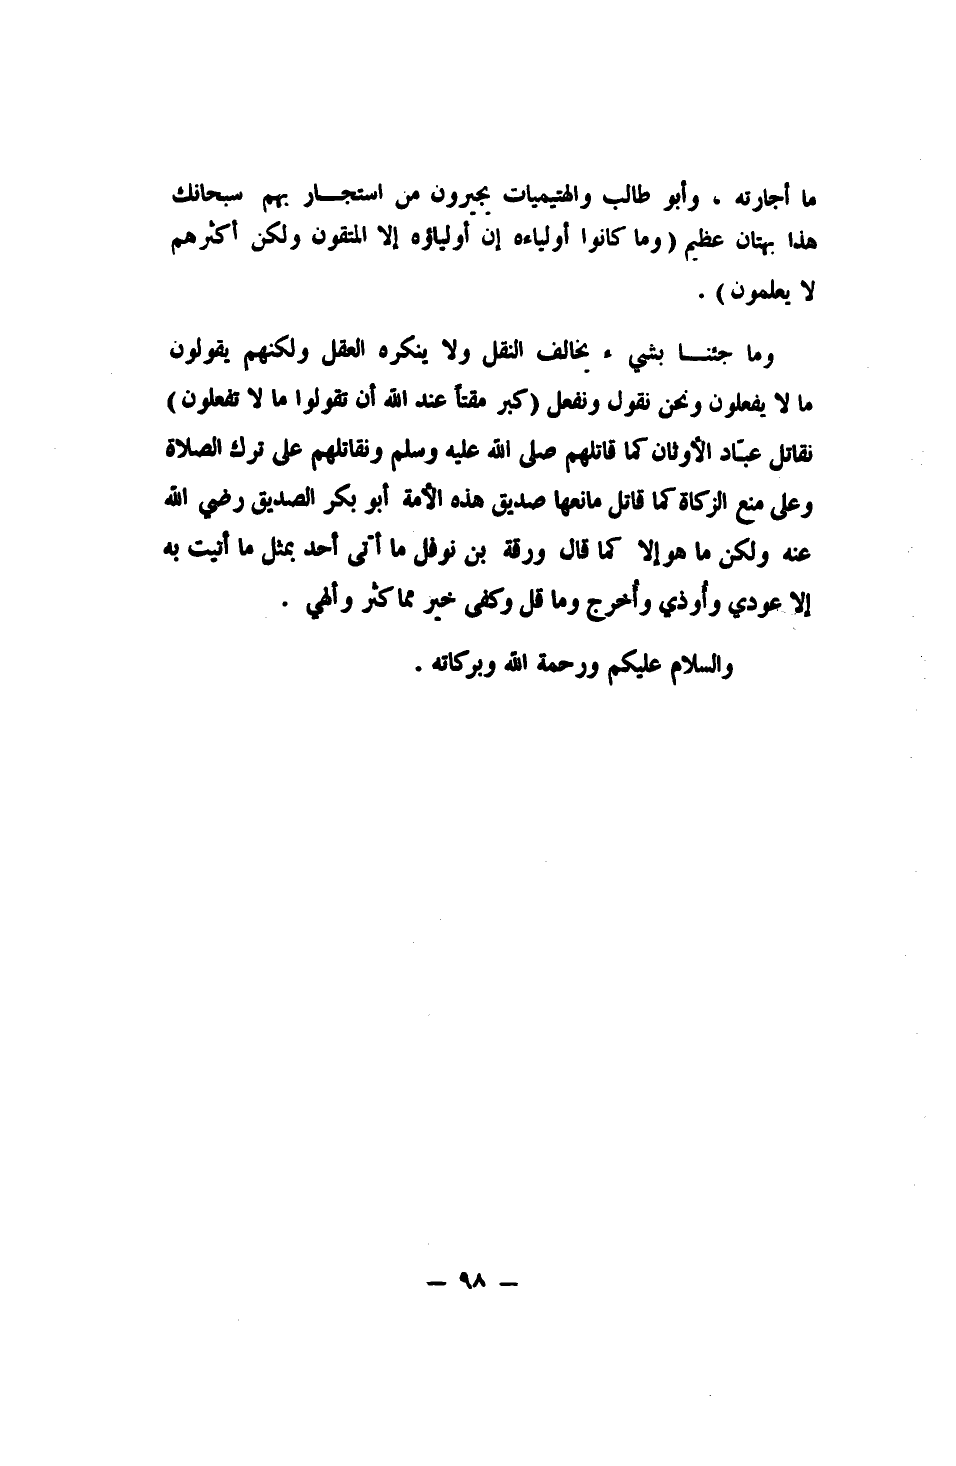 ما أجارته ، وأبو طالب والهتيميات يجيرون من استجـــار بهم سبحانك
هذا بهتان عظيم ( وما كانوا أولياءه إن أولياؤه إلا المتقون ولكن أكثرهم
لا يعلمون ) .
وما جئنـــا بشيء يخالف النقل ولا ينكره العقل ولكنهم يقولون
ما لا يفعلون ونحن نقول ونفعل ( كبر مقتاً عند الله أن تقولوا ما لا تفعلون )
نقاتل عبّاد الأوثان كما قاتلهم صلى الله عليه وسلم ونقاتلهم على ترك الصلاة
وعلى منع الزكاة كما قاتل مانعها صديق هذه الأمة أبو بكر الصديق رضي الله
عنه ولكن ما هو إلا كما قال ورقة بن نوفل ما أتى أحد بمثل ما أتيت به
إلا عودي وأُوذي وأُخرج وما قل وكفى خير مما كثر وألهي .
والسلام عليكم ورحمة الله وبركاته .
— ٩٨ —